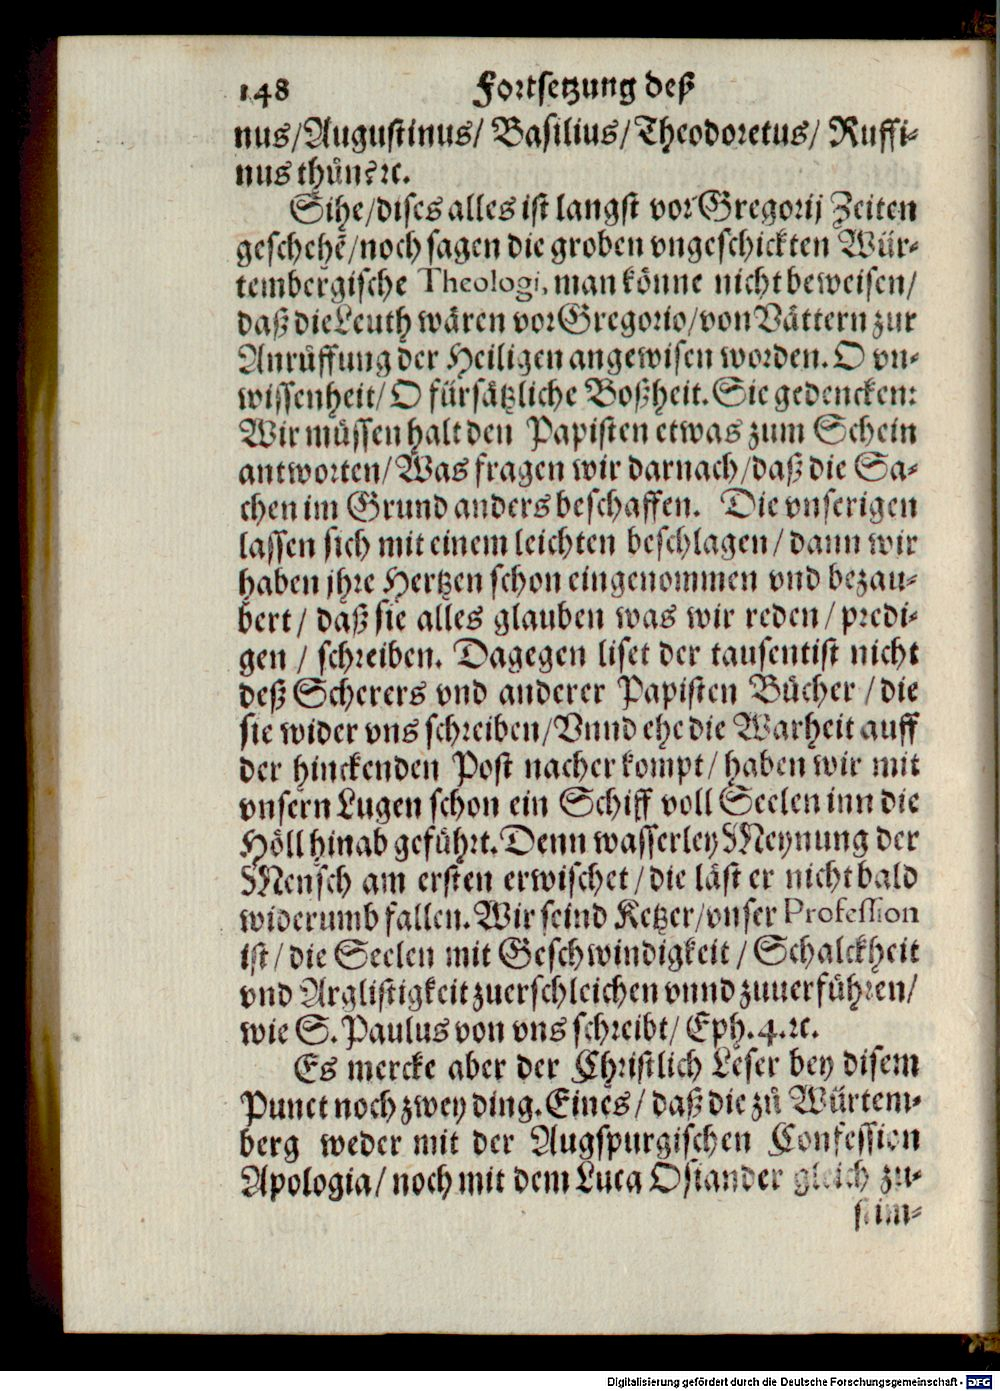 148 Fortsetzung deß
nus/Augustinus/ Basilius/Theodoretus/ Ruffi-
nus thůn?ꝛc.
Sihe/dises alles ist langst vor Gregorij Zeiten
geschehē/noch sagen die groben vngeschickten Wür-
tembergische Theologi, man könne nicht beweisen/
daß die Leuth wären vor Gregorio/von Vättern zur
Anrůffung der Heiligen angewisen worden. O vn-
wissenheit/ O fürsätzliche Boßheit. Sie gedencken:
Wir müssen halt den Papisten etwas zum Schein
antworten/Was fragen wir darnach/daß die Sa-
chen im Grund anders beschaffen. Die vnserigen
lassen sich mit einem leichten beschlagen/dann wir
haben jhre Hertzen schon eingenommen vnd bezau-
bert/ daß sie alles glauben was wir reden/ predi-
gen / schreiben. Dagegen liset der tausentist nicht
deß Scherers vnd anderer Papisten Bücher /die
sie wider vns schreiben/Vnnd ehe die Warheit auff
der hinckenden Post nacher kompt/ haben wir mit
vnsern Lugen schon ein Schiff voll Seelen inn die
Höll hinab geführt. Denn wasserley Meynung der
Mensch am ersten erwischet/die läst er nicht bald
widerumb fallen. Wir seind Ketzer/vnser Profession
ist/ die Seelen mit Geschwindigkeit / Schalckheit
vnd Arglistigkeit zuerschleichen vnnd zuuerführen/
wie S. Paulus von vns schreibt/ Eph. 4. ꝛc.
Es mercke aber der Christlich Leser bey disem
Punct noch zwey ding. Eines/ daß die zů Würtem-
berg weder mit der Augspurgischen Confession
Apologia/ noch mit dem Luca Osiander gleich zu-
stim-
Digitalisierung gefördert durch die Deutsche Forschungsgemeinschaft - DFG